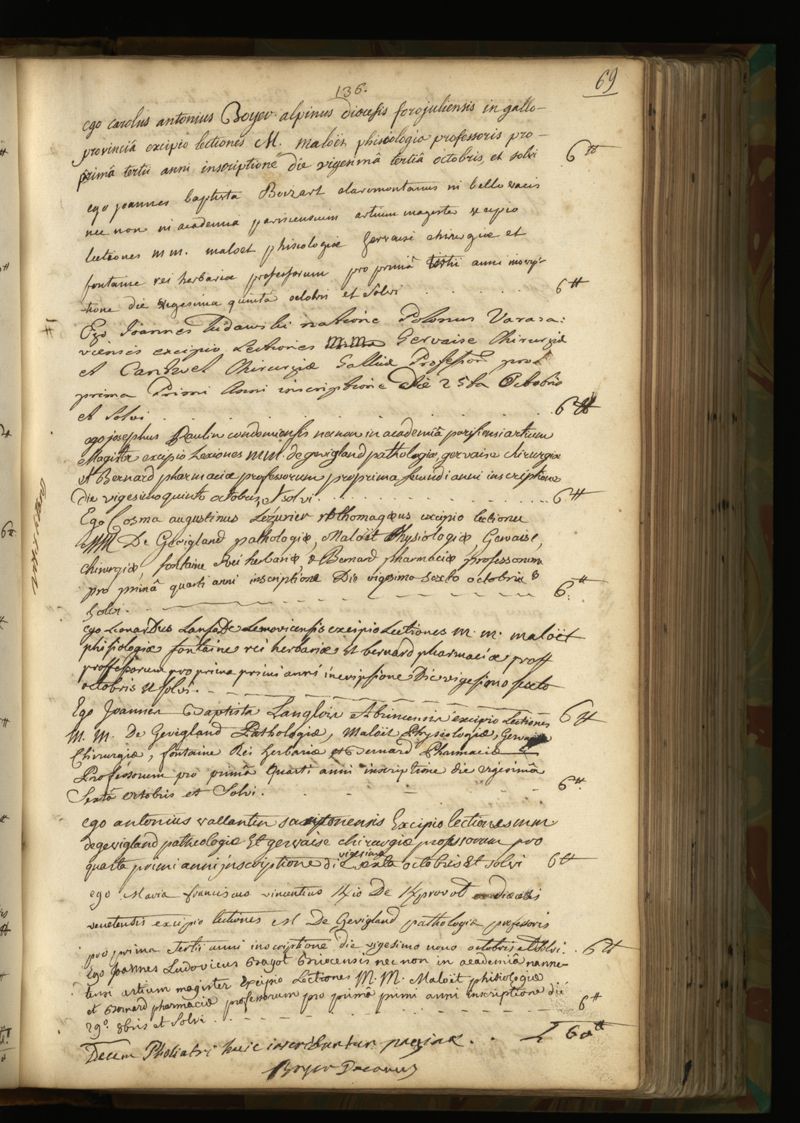 69
136.
ego carolus antonius Boyer alpinus diocesis forojuliensis in gallo-
provinciâ excipio lectiones M. maloët phisiologiæ professoris pro
primâ tertii anni inscriptione die vigesimâ tertiâ octobris et solvi 6 ₶
ego joannes baptista claromontanus in bellovacis
nec non in academia parisiensium artium magister excipio
lectiones m m. maloet phisiologiæ gervaise chirurgiæ et
fontaine rei herbariæ professorum pro primâ anni inscrip-
tione die vigesima quinta octobris et solvi 6 ₶
Ego Joannes natione Polonus Varsa:
viensis excipio Lectiones Gervaise Chirurgiæ
et Chirurgiæ Gallicæ Professor pro
prima Primi Anni inscriptione Die 25ta Octobris
et Solvi 6 ₶
ego josephus Paulin condomiensis necnon in academiâ parisiensi artium
Magister excipio Lexiones mm. de gevigland pathologiæ, gervaise chirurgiæ
et Bernard pharmaciæ professorum pro prima secundi anni inscriptione
die vigesimo quinto octobris, et solvi. 6 ₶
Ego Cosma augustinus Lezurier rothomagæus excipio lectiones
MM De Gevigland pathologiæ, Maloët Physiologiæ, Gervaise,
chirurgiæ, fontaine Rei herbariæ, & Bernard pharmaciæ professorum
pro primâ quarti anni inscriptione Die vigesimo sexto octobris &
solvi. 6 ₶
ego Leonardus Lemovicensis excipio Lectiones m. m. maloët
phisiologiæ fontaine rei herbariæ Et bernard pharmaciæ proff
proffessorum pro prima primi anni inscripsione Die vigesimo sexto
octobris et solvi. 6 ₶
Ego Joannes Baptista Langlois Abrincensis excipio Lectiones
M. M. De Gevigland Pathologiæ, Maloët Physiologiæ, Gervaise
Chirurgiæ, fontaine Rei herbariæ et Bernard Pharmaciæ
Professorum pro primâ quarti anni inscriptione die vigesimâ
Sextâ octobris et Solvi. 6 ₶
ego antonius vallantin excipio lectiones mm
degevigland patheologiæ Et gervaise chirurgiæ professorum pro
quarta primi anni inscriptione die vigesima sexta octobris Et solvi 6 ₶
ego Maria franciscus vincentius De
venetensis excipio lectiones M De Gevigland pathologiæ professoris
pro prima tertii anni inscriptione die vigesimo nono octobris et solvi. 6 ₶
Ego Joannes Ludovicus Briocensis nec non in academiâ nanne-
tensi artium magister Excipio Lectiones M. M. Maloët phisiologiæ
et Bernard pharmaciæ professorum pro primâ primi anni inscriptione die
29º. 8bris et Solvi 6 ₶
Decem Philiatri huic inscribuntur paginæ. 60 ₶
Boyer Decanus